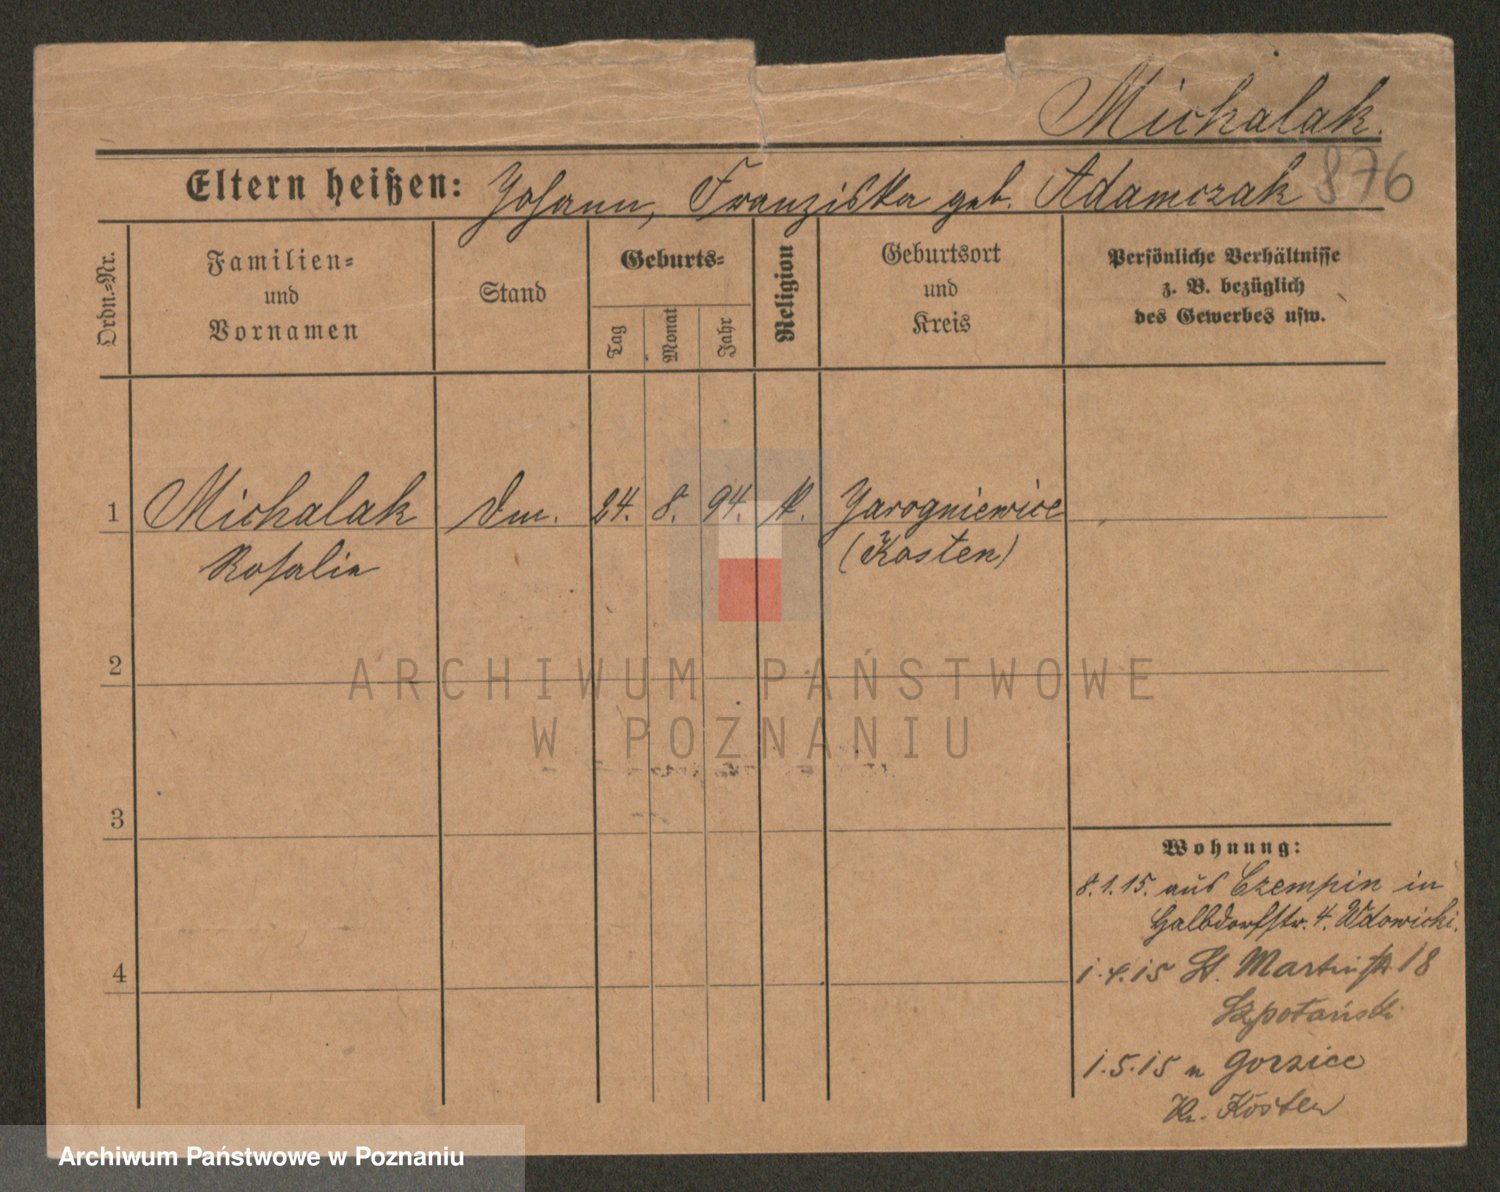 Michalak.
Eltern heißen: Johann, Franziska geb. Adamczak 876
Ordn.=Nr.
Familien=
und
Vornamen
Stand
Geburts=
Tag
Monat
Jahr
Religion
Geburtsort
und
Kreis
Persönliche Verhältnisse
z. B. bezüglich
des Gewerbes usw.
1 Michalak 24. 8. 94. k. Jarogniewice
Rosalie (Kosten)
2
ARCHIWUM PAŃSTWOWE
W POZNANIU
3
Wohnung:
8.1.15. aus Czempin in
Halbdorfstr. 4. Wdowicki.
4
1.4.15 St. Martinstr 18
Szpotański
1.5.15 n Gorzice
Kr. Kosten
Archiwum Państwowe w Poznaniu